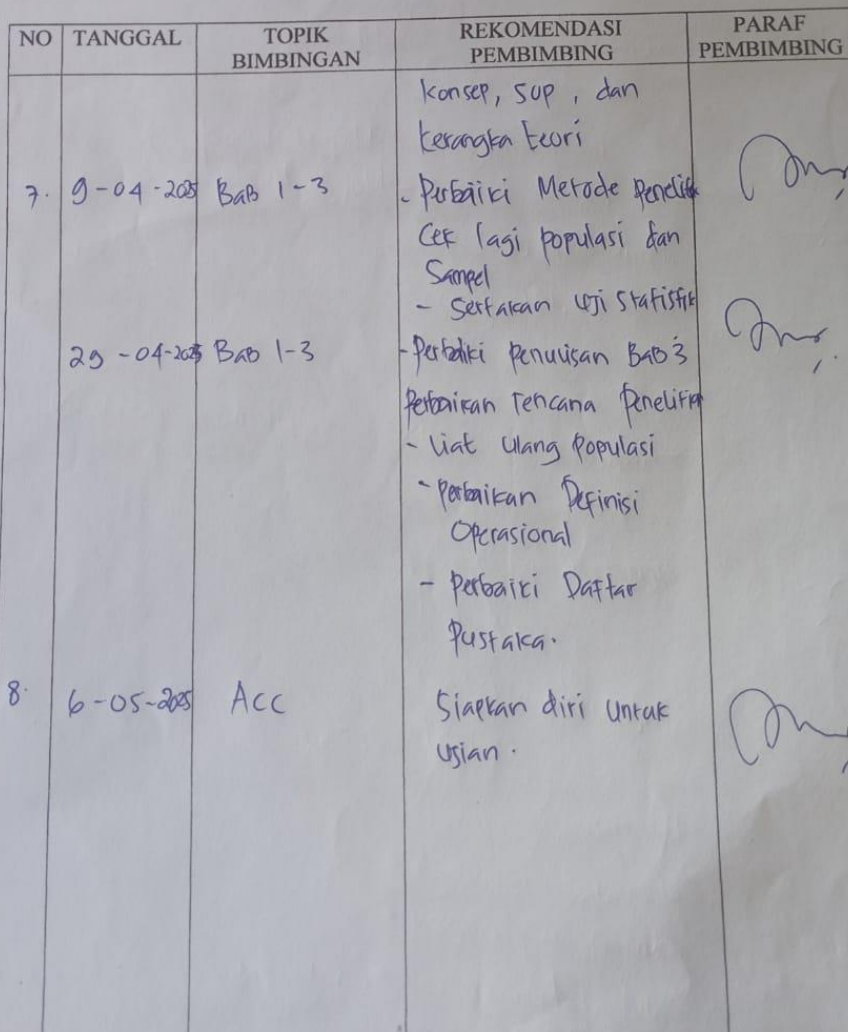 NO TANGGAL TOPIK BIMBINGAN REKOMENDASI PEMBIMBING PARAF PEMBIMBING
Konsep, SOP, dan
Kerangka teori
7. 9-04-2025 BaB 1-3 - Perbaiki Metode Penelit
Cek lagi populasi dan
Sampel
- Sertakan uji Statistik
29-04-2025 Bab 1-3 - Perbaiki penulisan BaB 3
Perbaikan rencana Penelitian
- liat ulang Populasi
- Perbaikan Definisi
Operasional
- Perbaiki Daftar
Pustaka.
8. 6-05-2025 ACC Siapkan diri Untuk
Ujian.